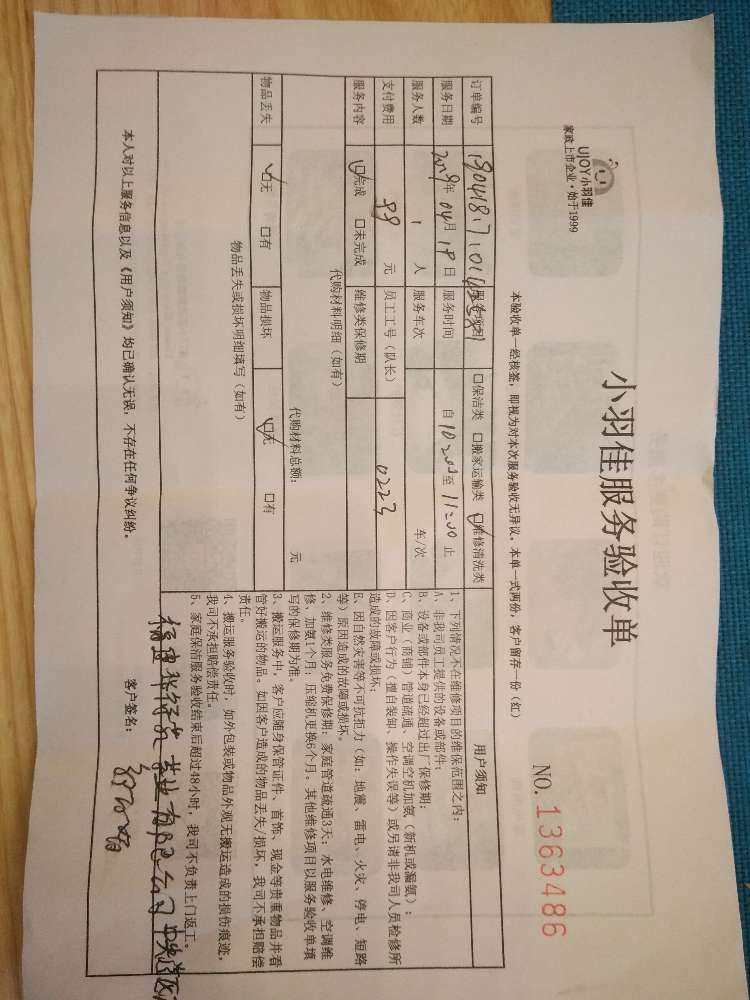 UJOY小羽佳
家政上市企业·始于1999
小羽佳服务验收单
NO. 1363486
本验收单一经核签，即视为对本次服务验收无异议，本单一式两份，客户留存一份（红）
订单编号 服务项目 口保洁类 口搬家运输类 口维修清洗类
服务日期 2019年 04月 18日 服务时间 自 10:00 至 11:00 止
服务人数 1 人 服务车次 车/次
支付费用 99 元 员工工号（队长） 0223
服务内容 口完成 口未完成 维修类保修期
代购材料明细（如有）
代购材料总额： 元
物品丢失 口无 口有 物品损坏 口无 口有
物品丢失或损坏明细填写（如有）
用户须知
1、下列情况不在维修项目的维保范围之内：
A、非我司员工提供的设备或部件；
B、设备或部件本身已经超过出厂保修期；
C、商业（商铺）管道疏通、空调空机加氨（新机或漏氨）；
D、因客户行为（擅自装卸、操作失误等）或另请非我司人员检修所
造成的故障或损坏；
E、因自然灾害等不可抗拒力（如：地震、雷电、火灾、停电、短路
等）原因造成的故障或损坏。
2、维修类服务免费保修期：家庭管道疏通3天；水电维修、空调维
修、加氨1个月；压缩机更换6个月。其他维修项目以服务验收单填
写的保修期为准。
3、搬运服务中，客户应随身保管证件、首饰、现金等贵重物品并看
管好搬运的物品。如因客户造成的物品丢失/损坏，我司不承担赔偿
责任。
4、搬运服务验收时，如外包装或物品外观无搬运造成的损伤痕迹，
我司不承担赔偿责任。
5、家庭保洁服务验收结束后超过48小时，我司不负责上门返工。
本人对以上服务信息以及《用户须知》均已确认无误，不存在任何争议纠纷。
客户签名：